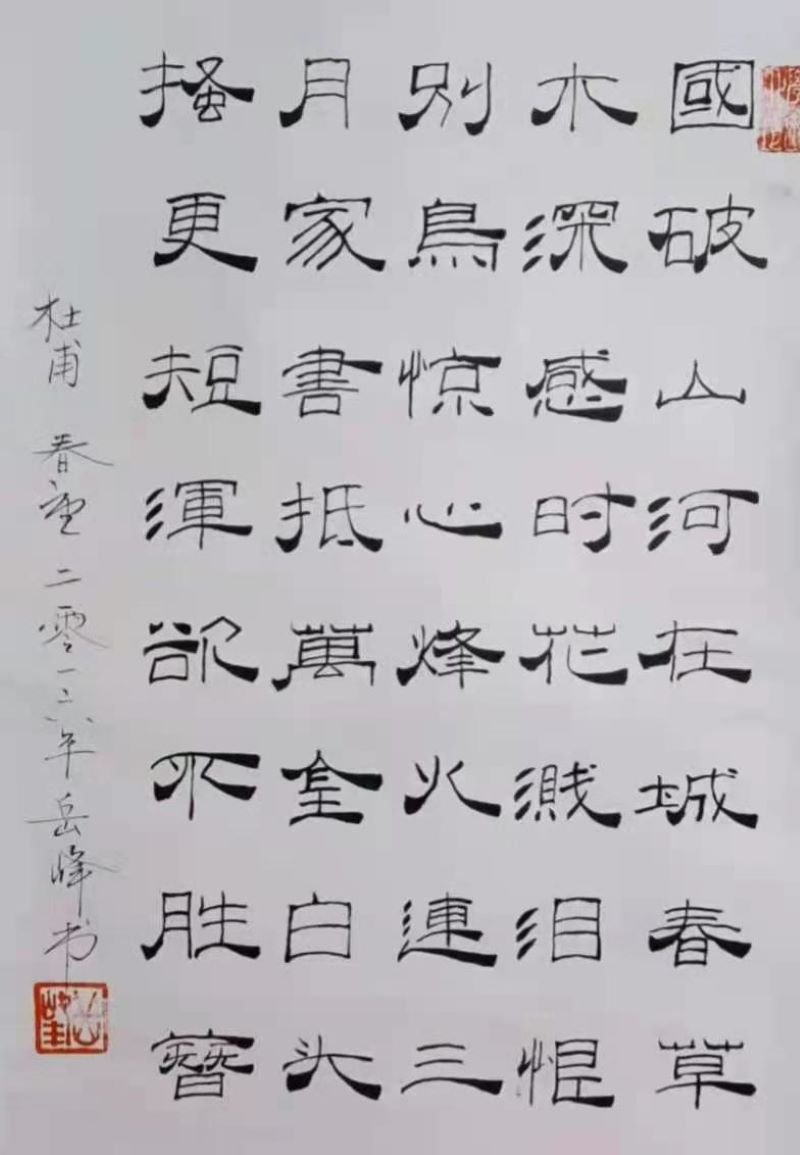 國破山河在城春草
木深感时花溅泪恨
別鳥惊心烽火連三
月家書抵萬金白头
搔更短渾欲不胜簪
杜甫 春望 二零一六年岳峰书